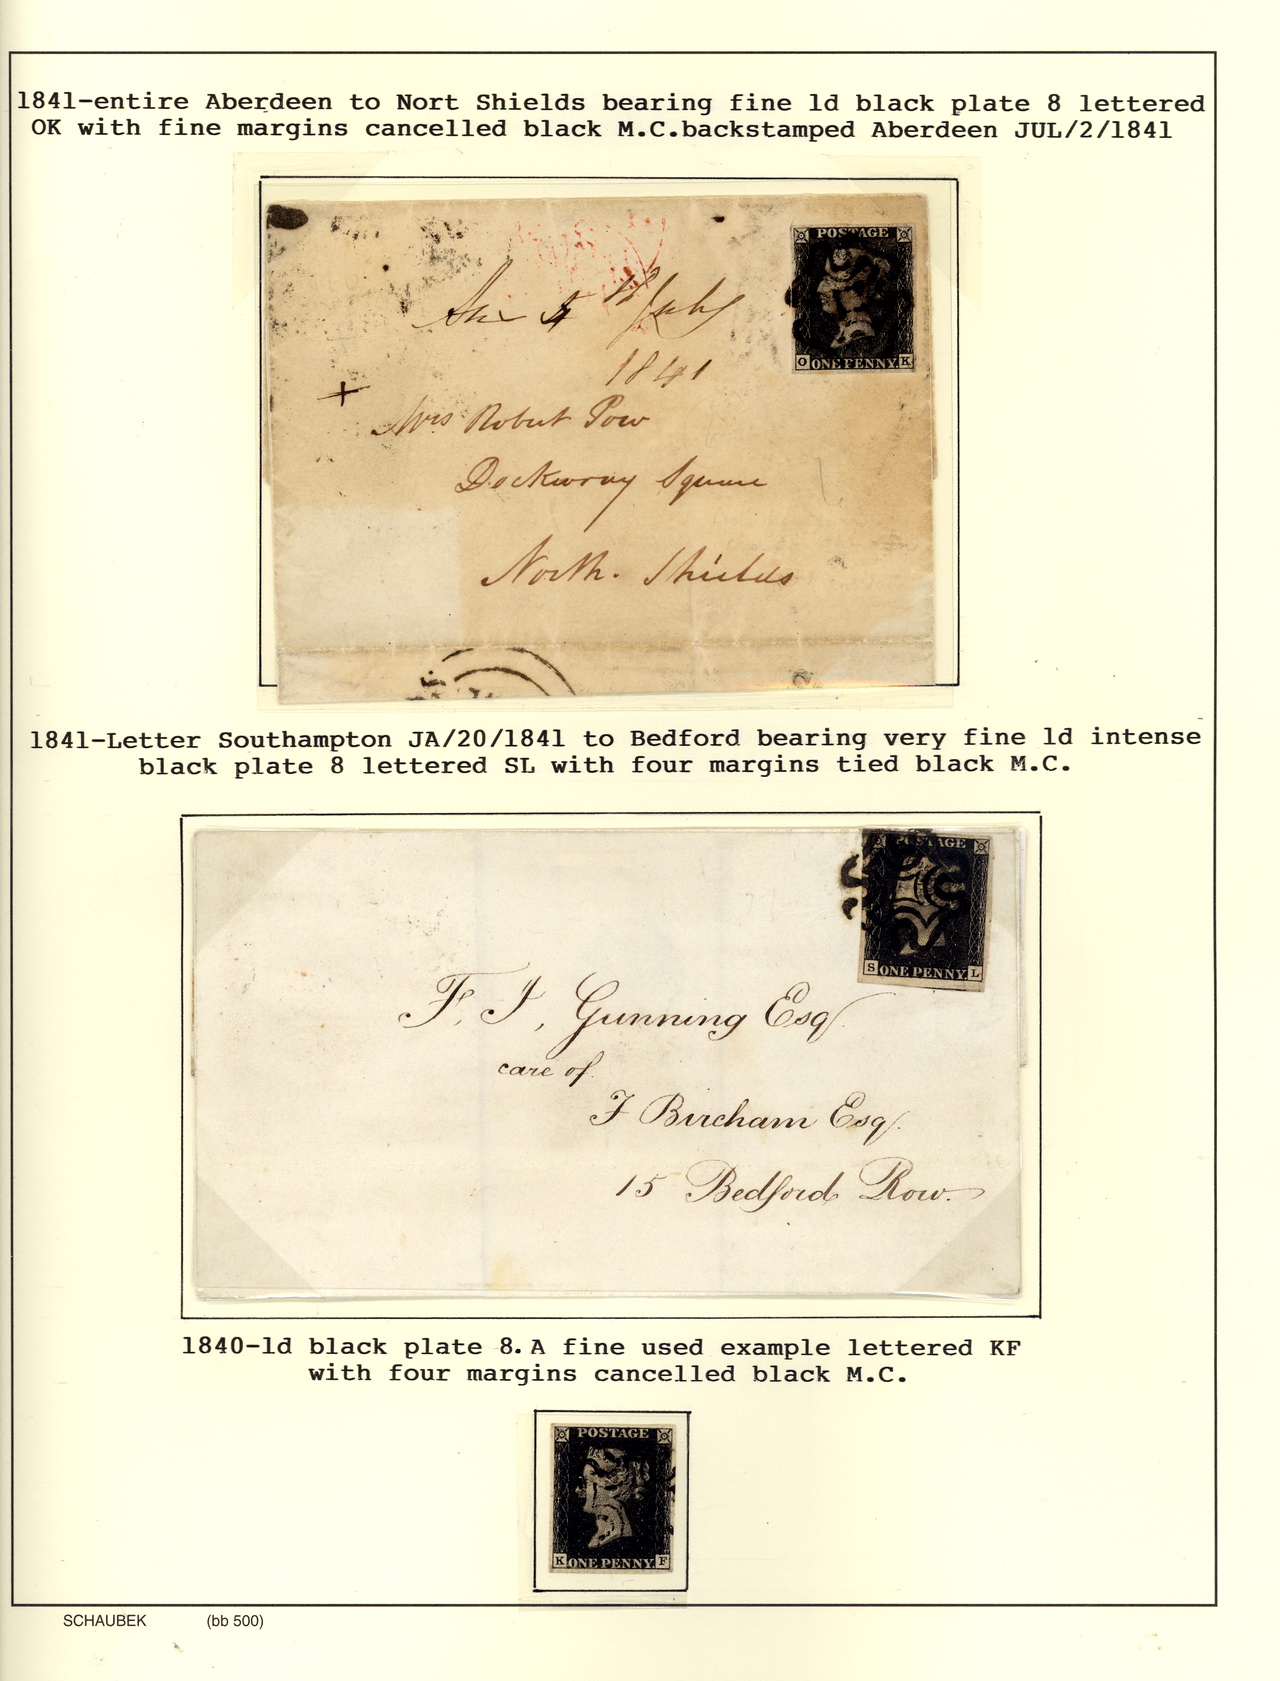 1841-entire Aberdeen to Nort Shields bearing fine 1d black plate 8 lettered
OK with fine margins cancelled black M.C.backstamped Aberdeen JUL/2/1841
POSTAGE
4th July
1841
O ONE PENNY K
Mrs Robert Pow
Dockwray Square
North. Shields
1841-Letter Southampton JA/20/1841 to Bedford bearing very fine 1d intense
black plate 8 lettered SL with four margins tied black M.C.
POSTAGE
S ONE PENNY L
F. J, Gunning Esq
care of
F Bircham Esq.
15 Bedford Row.
1840-1d black plate 8. A fine used example lettered KF
with four margins cancelled black M.C.
POSTAGE
K ONE PENNY F
SCHAUBEK (bb 500)